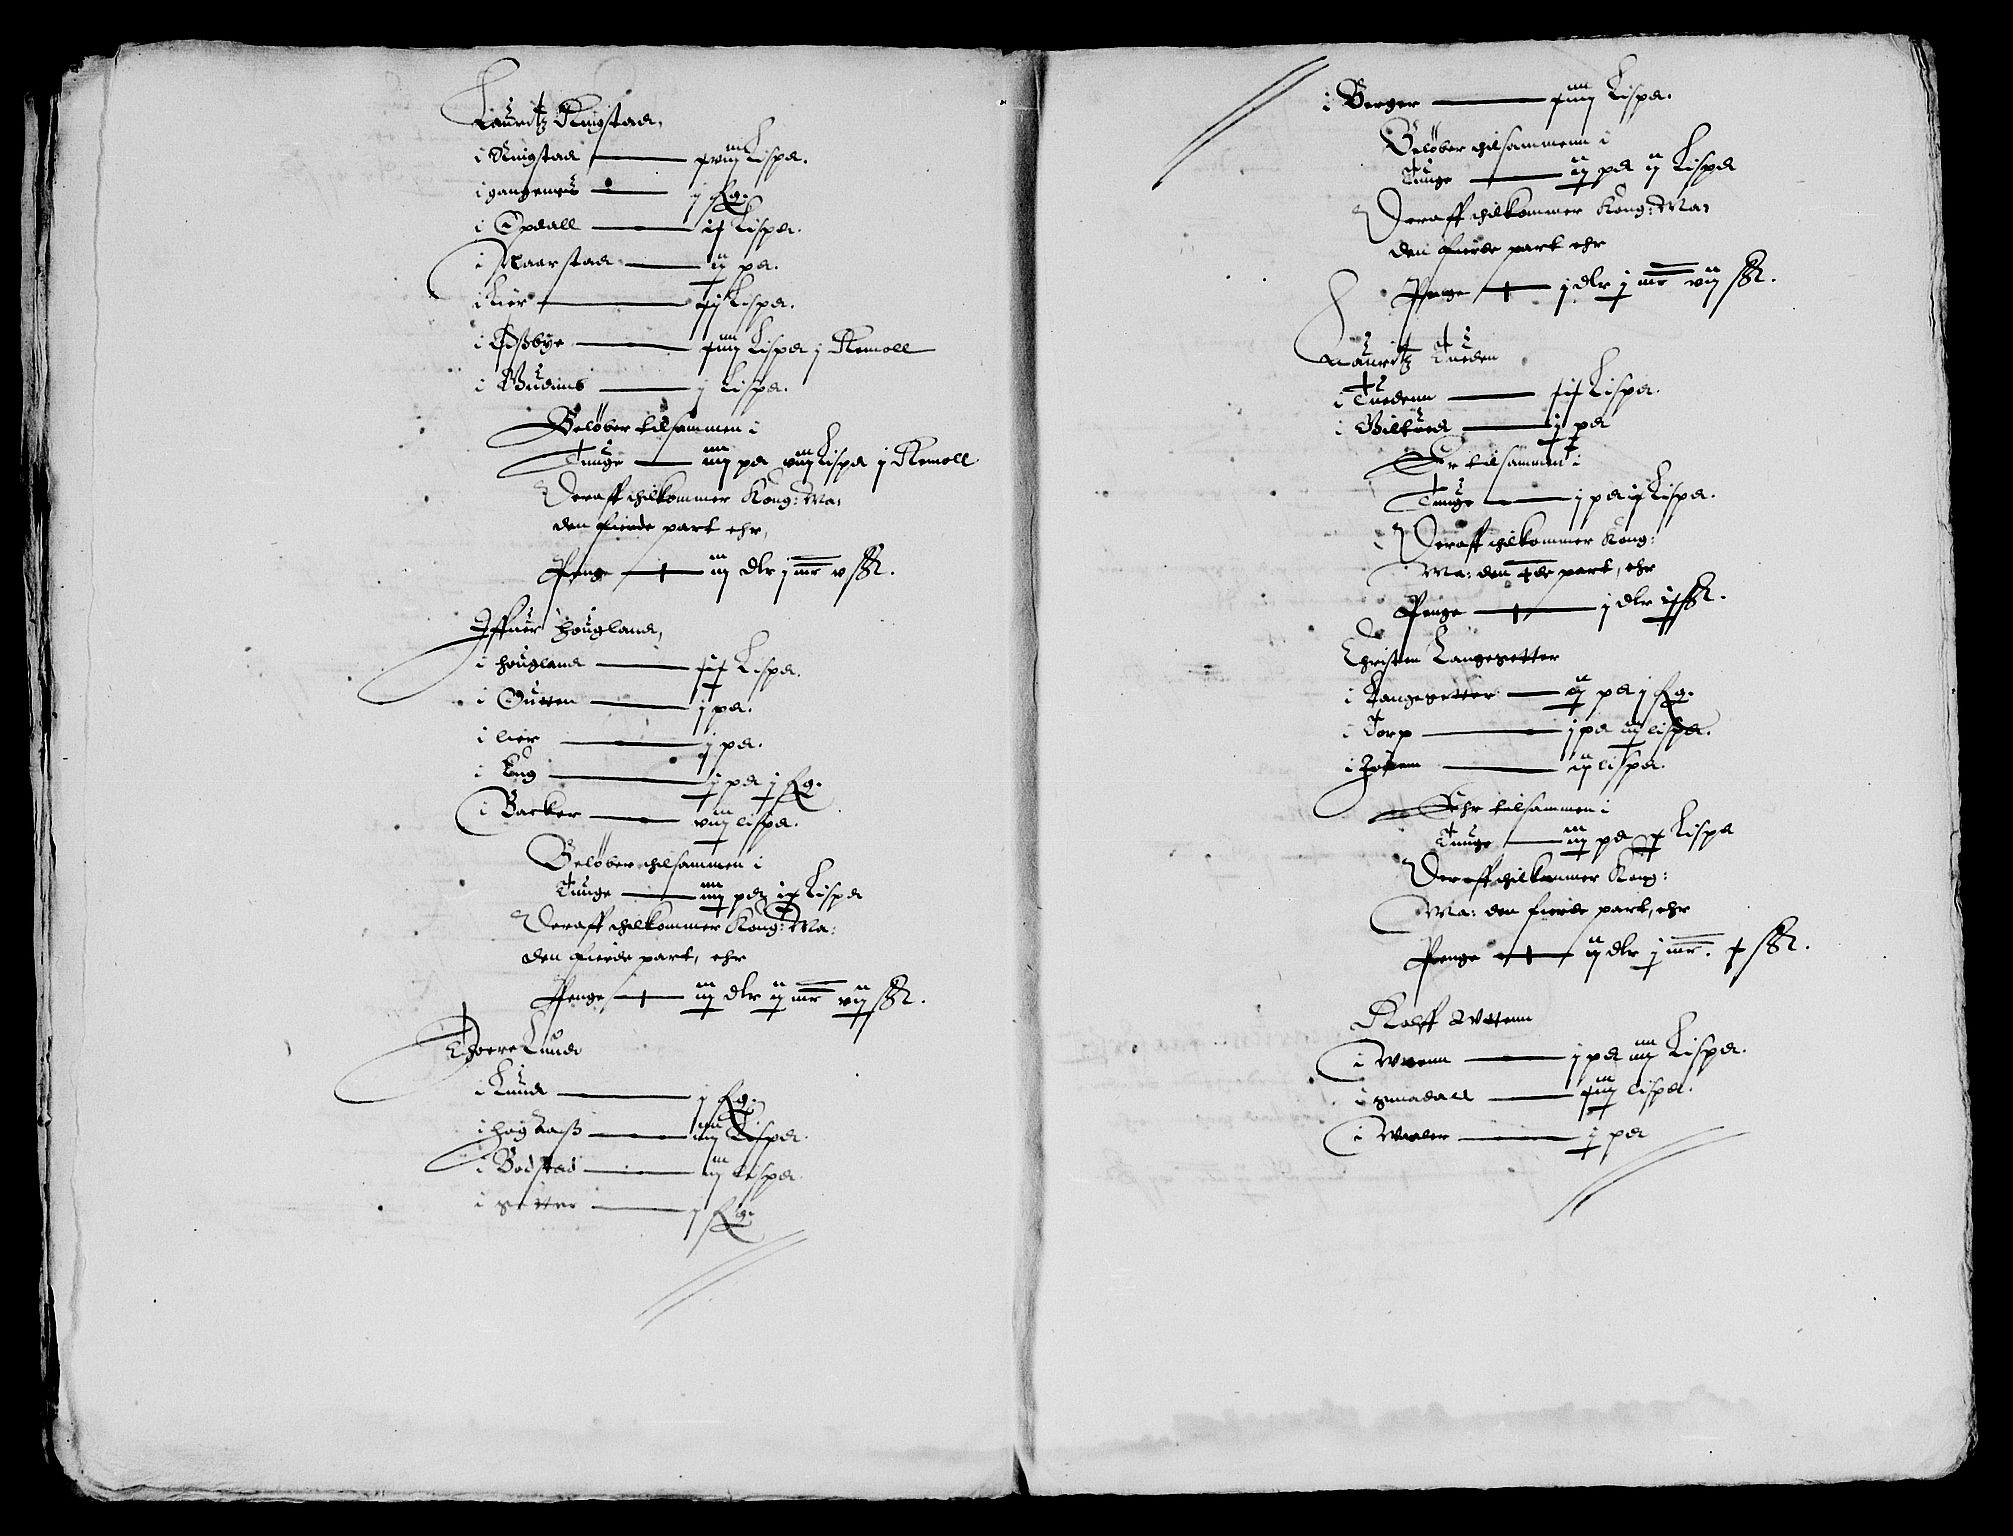 Lauritz Ringstad,
i Ringstad — xviij Lispd.
i gangenes — j Fg.
i Opdall — ix Lispd.
i Naarstad — ij pd.
i Lier — xj Lispd.
i Eßbye — xiiij Lispd j Remoll
i Gudims — j Lispd.
Beløber tilsammen i
Tunge — iiij pd viij Lispd j Remoll
Deraff thilkommer Kong: Ma:
den fierde part ehr,
Penge — iij dlr j mr v ſß.
Iffuer Hougland,
i Hougland — xix Lispd.
i Outten — j pd.
i lier — j pd.
i Eng — j pd j Fg.
i Backer — viij lispd.
Beløber thilsammen i
Tunge — iiij pd ix Lispd
Deraff thilkommer Kong: Ma:
den fierde part, ehr
Penge — iij dlr ij mr vij ſß.
Thoere Lund
i Lund — j Fg.
i Hogaaß — iiij Lispd.
i Bodstad — iij Lispd.
i Setter — j Fg.
i Berger — xiiij Lispd.
Beløber thilsammenn i
Tunge — ij pd ij Lispd
Deraff thilkommer Kong: Ma:
den fierde part ehr
Penge — j dlr j mr vij ſß.
Lauritz Tueden
i Tuedenn — xix Lispd.
i Biltued — j pd
Er tilsammen i
Tunge — j pd ix Lispd.
Deraff thilkommer Kong:
Ma: den 4de part, ehr
Penge — j dlr ix ſß.
Christen Langesetter
i Langesetter — ij pd j Fg.
i Torp — j pd iij lispd.
i — ij lispd.
Ehr tilsammen i
Tunge — iij pd x Lispd
Deraff thilkommer Kong:
Ma: den fierde part, ehr
Penge — ij dlr j mr. x ſß.
Rolff
i — j pd iiij Lispd.
i Smadall — xiij lispd.
i — j pd